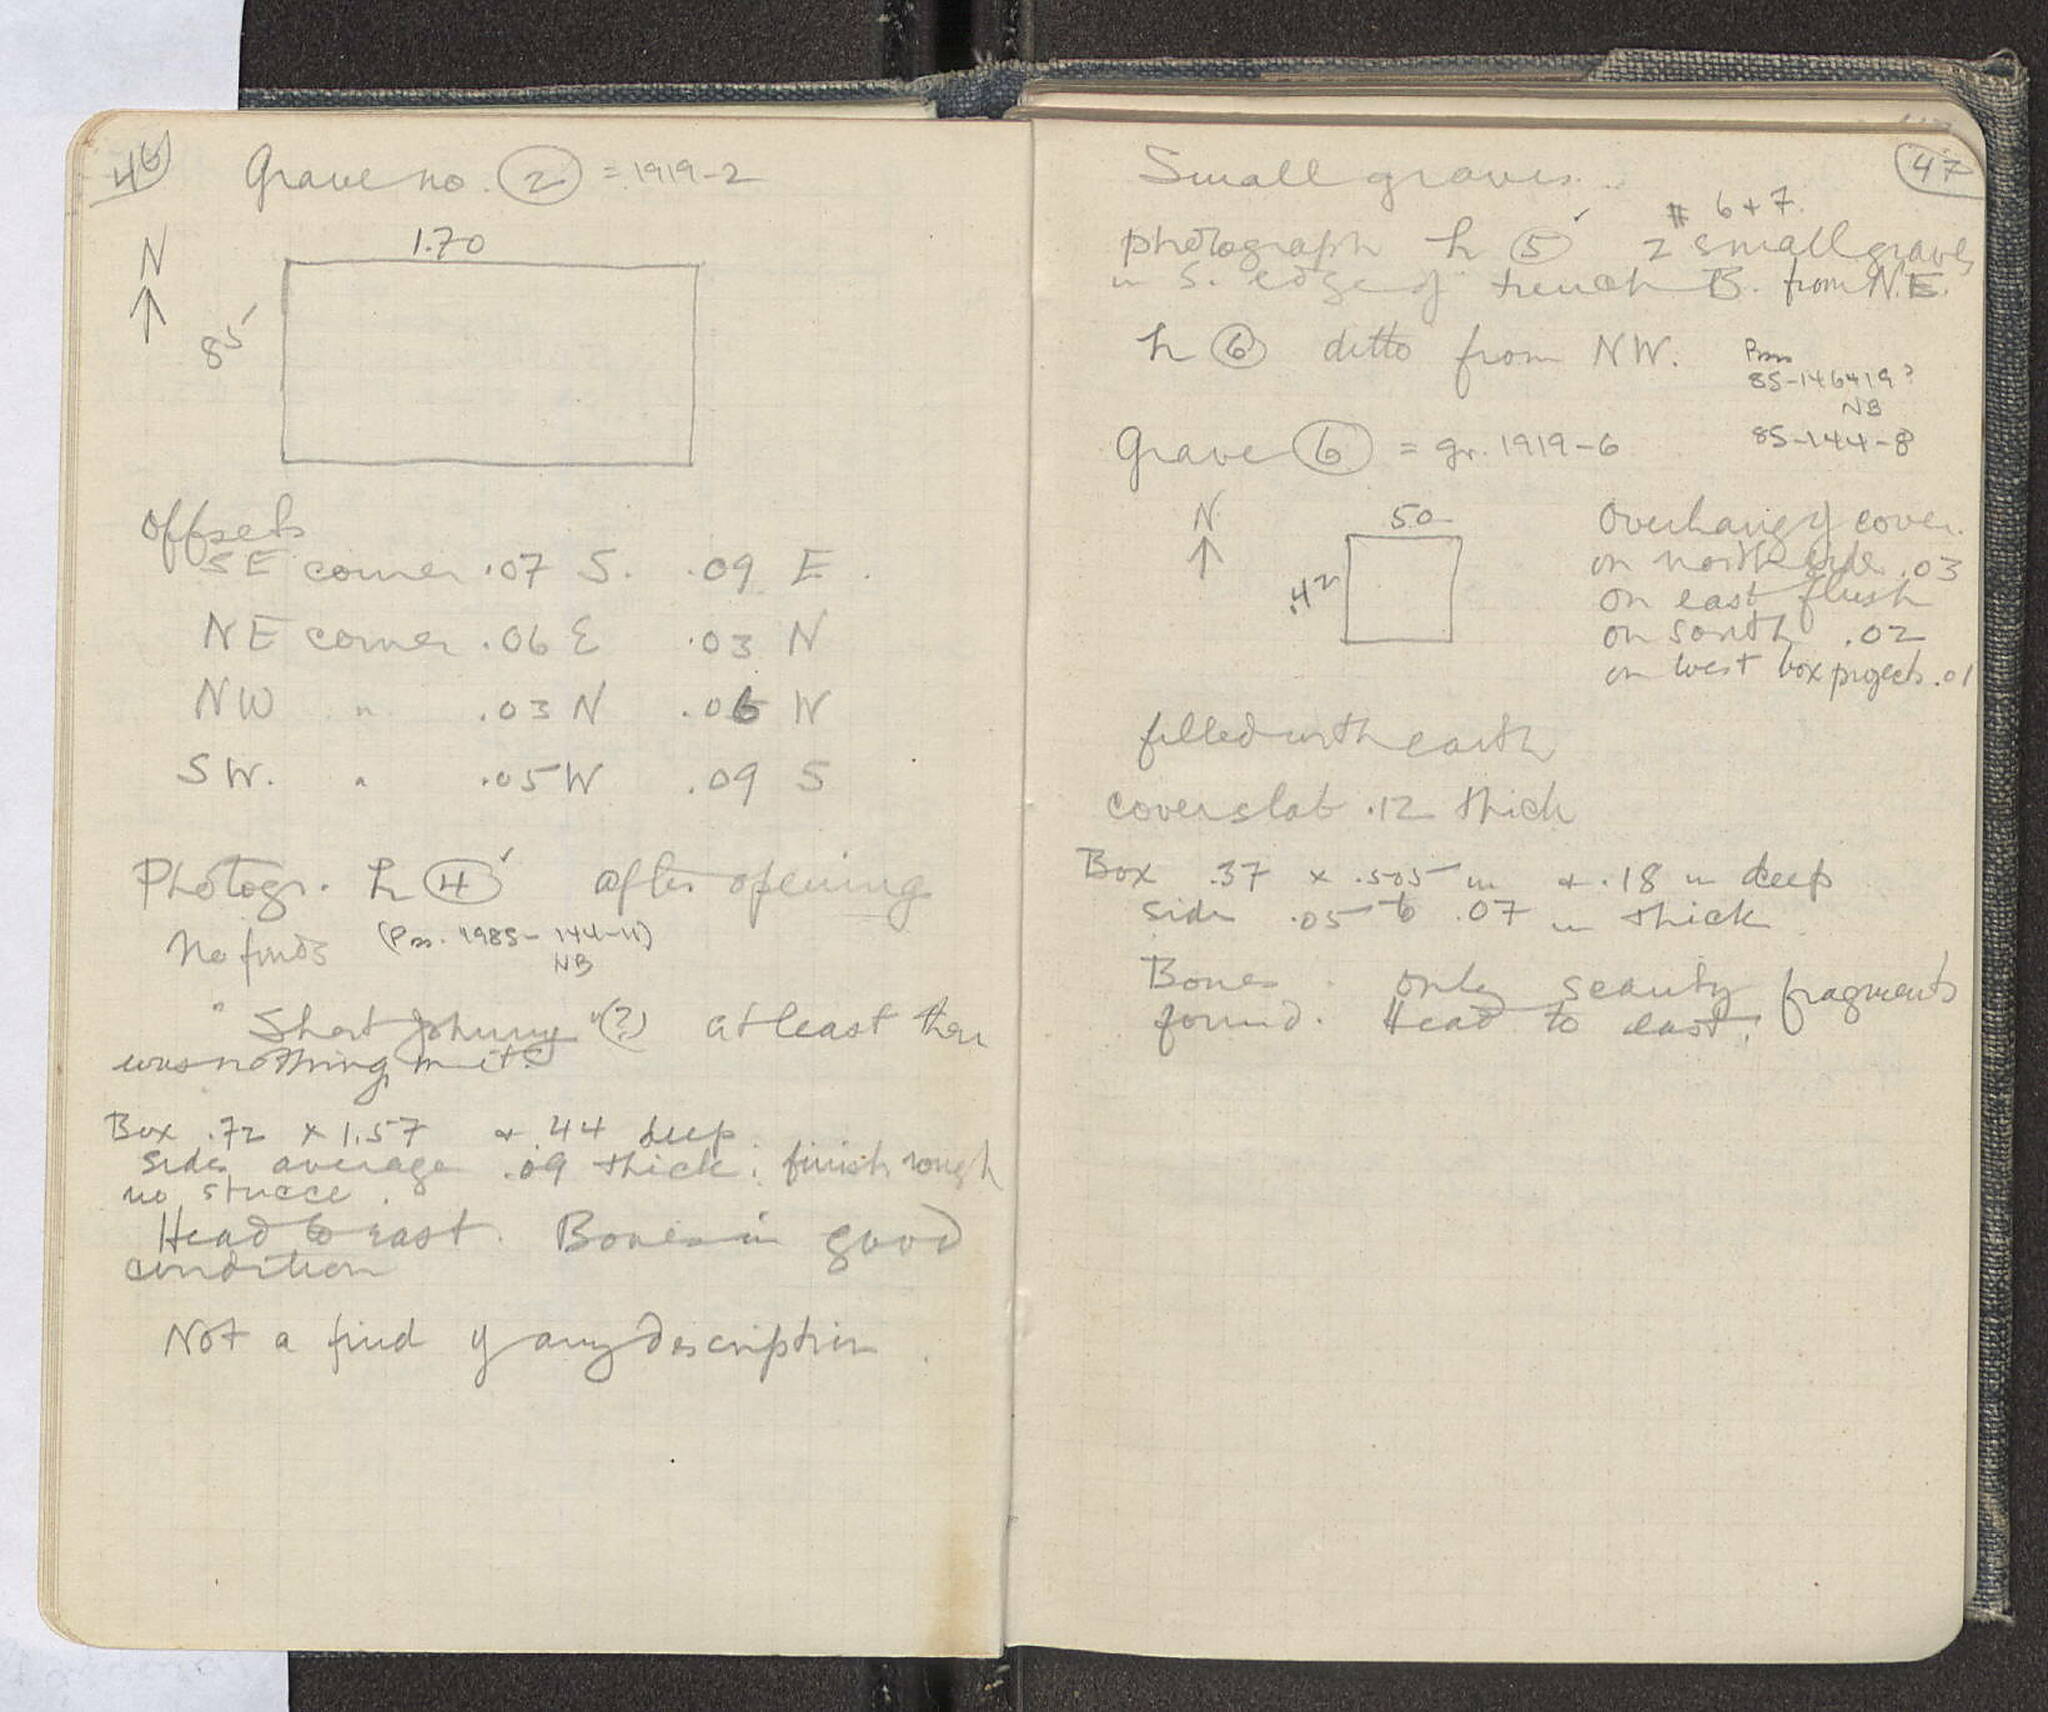 46
Grave no. 2 = 1919-2
N
1.70
85
Offsets
SE corner .07 S. .09 E.
NE corner .06 E .03 N
NW " .03 N .06 W
SW. " .05 W .09 S
Photogr. h 4 ✓ after opening
No finds (Pm. 1985-144-11)
NB
"Short Johnny" (?) at least there
was nothing in it.
Box .72 x 1.57 & .44 deep.
Sides average .09 thick; finish rough
no stucco.
Head to east. Bones in good
condition
Not a find of any description.
47
Small graves.
# 6 + 7.
photograph h 5 ✓ 2 small graves
in S. edge of trench B. from N.E.
h 6 ditto from NW.
Pm
85-146+19?
NB
85-144-8
Grave 6 = gr. 1919-6
N
50
.42
Overhang of cover.
on north side .03
on east flush
on south .02
on west box projects .01
filled with earth
cover slab .12 thick
Box .37 x .505 m & .18 m deep
sides .05 to .07 m thick.
Bones. only scanty fragments
found. Head to east.